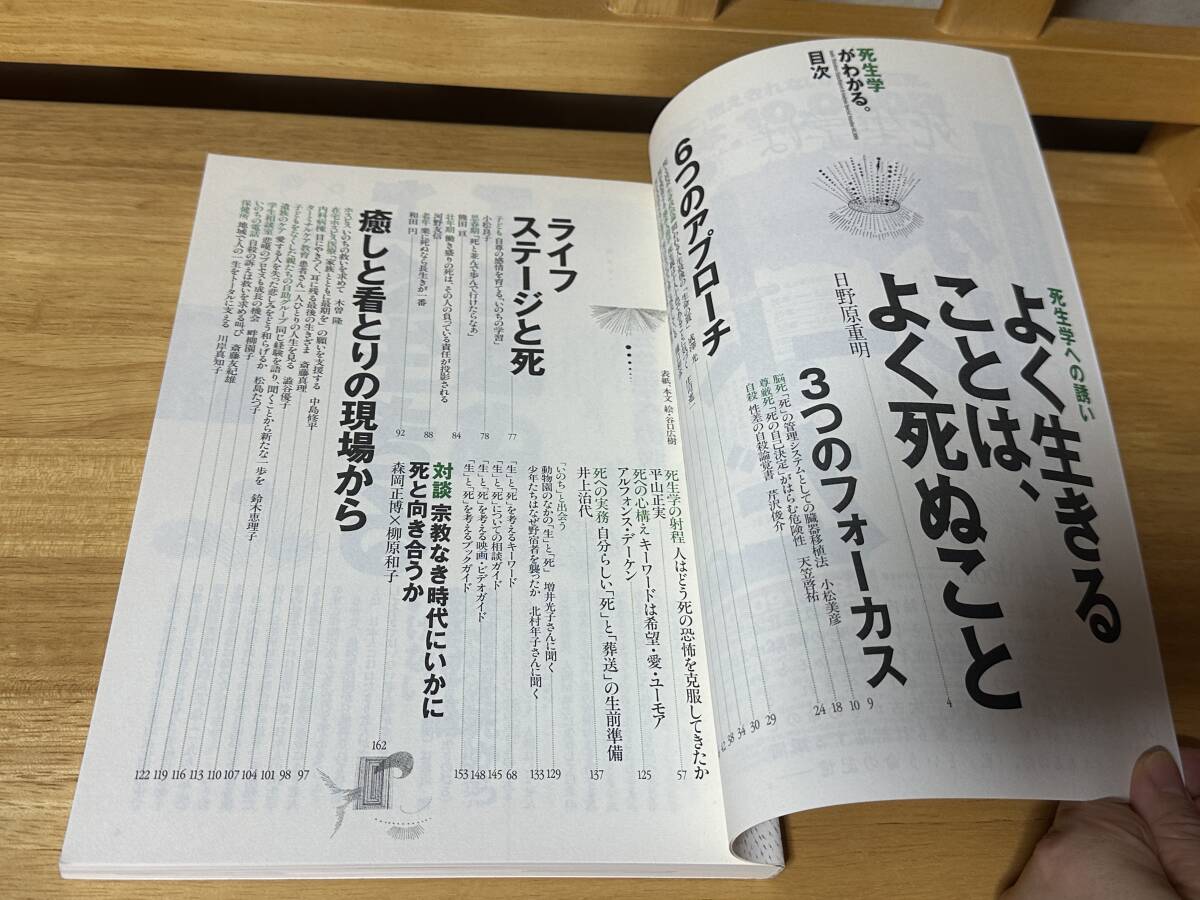 死生学
がわかる。
目次
死生学への誘い
よく生きる
ことは、
よく死ぬこと
日野原重明
4
3つのフォーカス
9
脳死 「死」の管理システムとしての臓器移植法 小松美彦
10
尊厳死 「死の自己決定」がはらむ危険性 天笠啓祐
18
自殺 性差の自殺論覚書 芹沢俊介
24
6つのアプローチ
29
30
34
38
42
死生学の射程 人はどう死の恐怖を克服してきたか
平山正実
57
死への心構え キーワードは希望・愛・ユーモア
アルフォンス・デーケン
125
死への実務 自分らしい「死」と「葬送」の生前準備
井上治代
137
「いのち」と出会う
動物園のなかの「生」と「死」 増井光子さんに聞く
129
少年たちはなぜ野宿者を襲ったか 北村年子さんに聞く
133
「生」と「死」を考えるキーワード
68
「生」と「死」についての相談ガイド
145
「生」と「死」を考える映画・ビデオガイド
148
「生」と「死」を考えるブックガイド
153
対談 宗教なき時代にいかに
死と向き合うか
森岡正博×柳原和子
162
表紙、本文 絵・谷口広樹
ライフ
ステージと死
77
子ども 自尊の感情を育てる、「いのちの学習」
小松良子
78
思春期 「死」と並んで歩んで行けたらなあ
熊田 亘
84
壮年期 働き盛りの死は、その人の負っている責任が投影される
河野友信
88
老年 楽に死ぬなら長生きが一番
和田 円
92
癒しと看とりの現場から
97
ホスピス いのちの救いを求めて 木曽 隆
98
在宅ホスピス医療 「家族とともに最期を」の願いを支援する 中島修平
101
内科病棟 目にやきつく、耳に残る最後の生きざま 斎藤真理
104
ターミナルケア教育 患者さん一人ひとりの人生を見る 澁谷優子
107
子どもをなくした親たちの自助グループ 同じ経験を語り、聞くことから新たな一歩を 鈴木恵理子
110
遺族のケア 愛する人を失った悲しみをどう和らげるか 松島たつ子
113
学生相談室 悲嘆のプロセスも成長の機会 畔柳園子
116
いのちの電話 自殺の訴えは救いを求める叫び 斎藤友紀雄
119
保健所 地域で人の一生をトータルに支える 川岸真知子
122